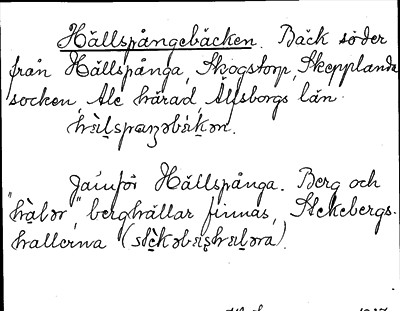 Hällspångebäcken. Bäck söder
från Hällspånga, Skogstorp, Skepplanda
socken, Ale härad, Älfsborgs län.
Jämför Hällspånga. Berg och
berghällar finnas, Stekebergs-
hallerna